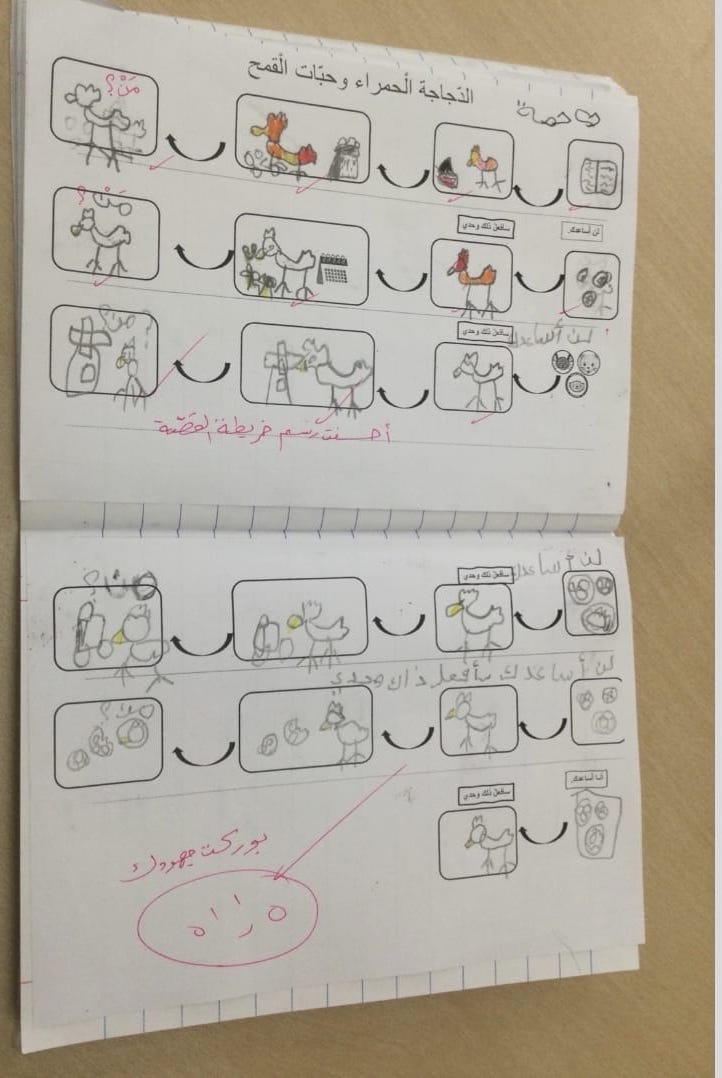 الدّجاجة الْحمراء وحبّات الْقمح
حصة
مَنْ؟
لن أساعدك.
سأفعل ذلك وحدي
مَنْ؟
لن أساعدك
سأفعل ذلك وحدي
من؟
أحسنت رسم خريطة القصّة
لن أساعدك
سأفعل ذلك وحدي
من؟
لن أساعدك سأفعل ذاك وحدي
من؟
أنا أساعدك.
سأفعل ذلك وحدي
بوركت جهودك